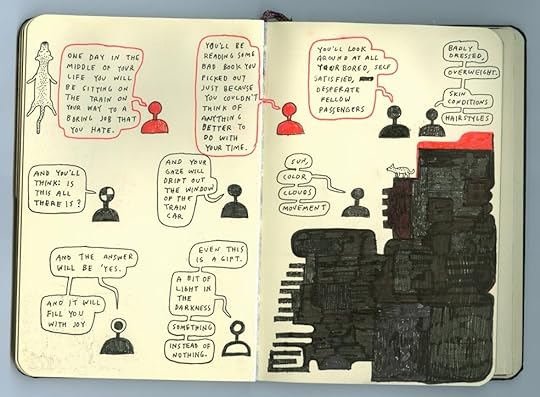 ONE DAY IN THE
MIDDLE OF YOUR
LIFE YOU WILL
BE SITTING ON
THE TRAIN ON
YOUR WAY TO A
BORING JOB THAT
YOU HATE.
YOU'LL BE
READING SOME
BAD BOOK YOU
PICKED OUT
JUST BECAUSE
YOU COULDN'T
THINK OF
ANYTHING
BETTER TO
DO WITH
YOUR TIME.
YOU'LL LOOK
AROUND AT ALL
YOUR BORED, SELF
SATISFIED,
DESPERATE
FELLOW
PASSENGERS
BADLY
DRESSED,
OVERWEIGHT.
SKIN
CONDITIONS
HAIRSTYLES
AND YOU'LL
THINK: IS
THIS ALL
THERE IS?
AND YOUR
GAZE WILL
DRIFT OUT
THE WINDOW
OF THE
TRAIN
CAR
SUN,
COLOR
CLOUDS
MOVEMENT
AND THE ANSWER
WILL BE 'YES.
AND IT WILL
FILL YOU
WITH JOY
EVEN THIS
IS A GIFT.
A BIT OF
LIGHT IN
THE
DARKNESS
SOMETHING
INSTEAD OF
NOTHING.